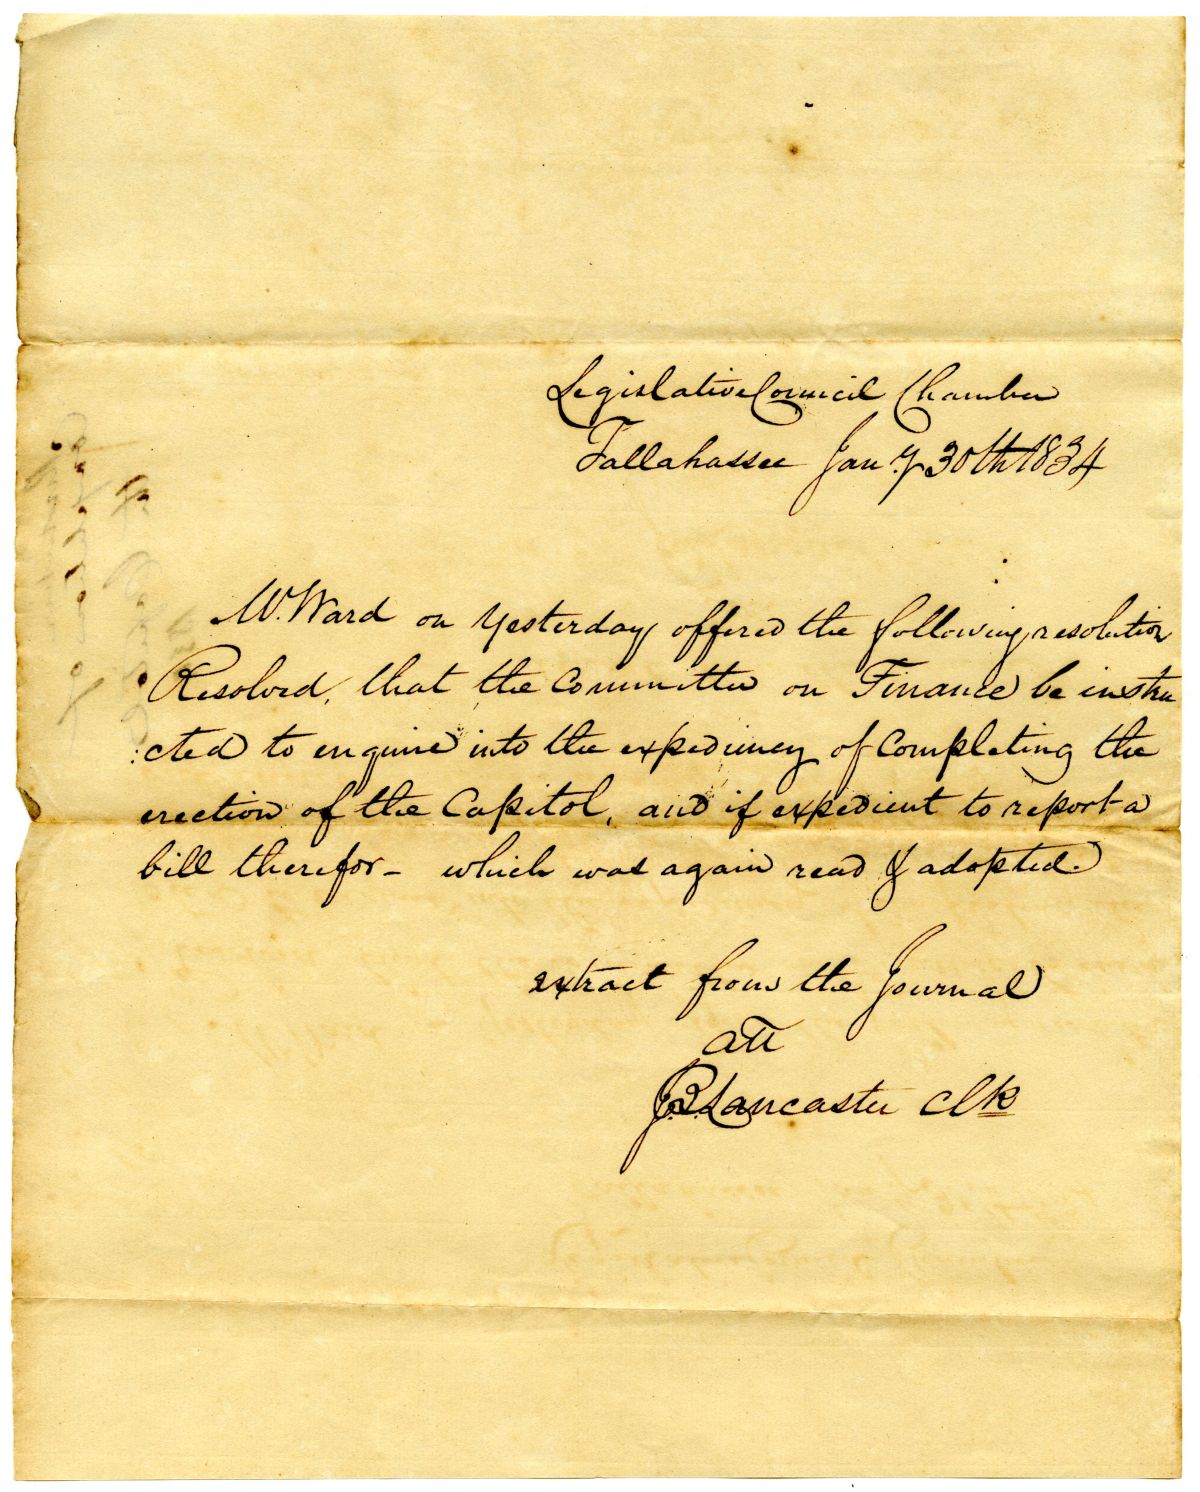 Legislative Council Chamber
Tallahassee Jany 30th 1834
Mr. Ward on Yesterday offered the following resolution
Resolved, that the Committee on Finance be instru
:cted to enquire into the expediency of completing the
erection of the Capitol, and if expedient to report a
bill therefor - which was again read & adopted.
extract from the Journal
att
J.B. Lancaster Clk